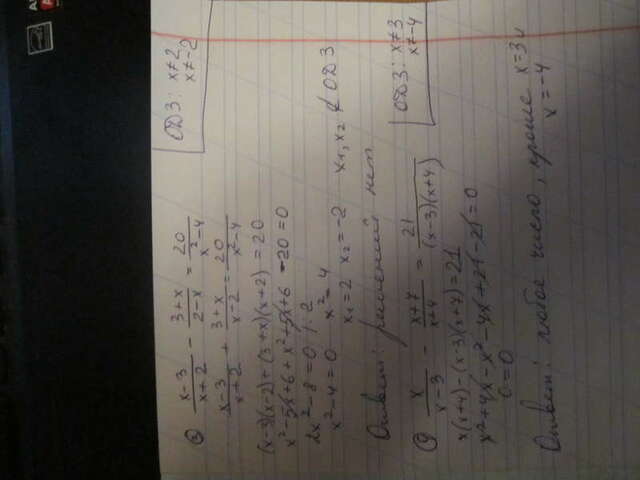 ③ (x-3)/(x+2) - (3+x)/(2-x) = 20/(x²-4)
ОДЗ: x≠2
x≠-2
(x-3)/(x+2) + (3+x)/(x-2) = 20/(x²-4)
(x-3)(x-2) + (3+x)(x+2) = 20
x²-5x+6 + x²+5x+6 -20 = 0
2x²-8=0 |:2
x²-4=0 x²=4
x₁=2 x₂=-2 x₁,x₂ ∉ ОДЗ
Ответ: решений нет
x/(x-3) - (x+7)/(x+4) = 21/((x-3)(x+4))
ОДЗ: x≠3
x≠-4
x(x+4)-(x-3)(x+7)=21
x²+4x-x²-4x+21-21=0
0=0
Ответ: любое число, кроме x=3 и
x=-4